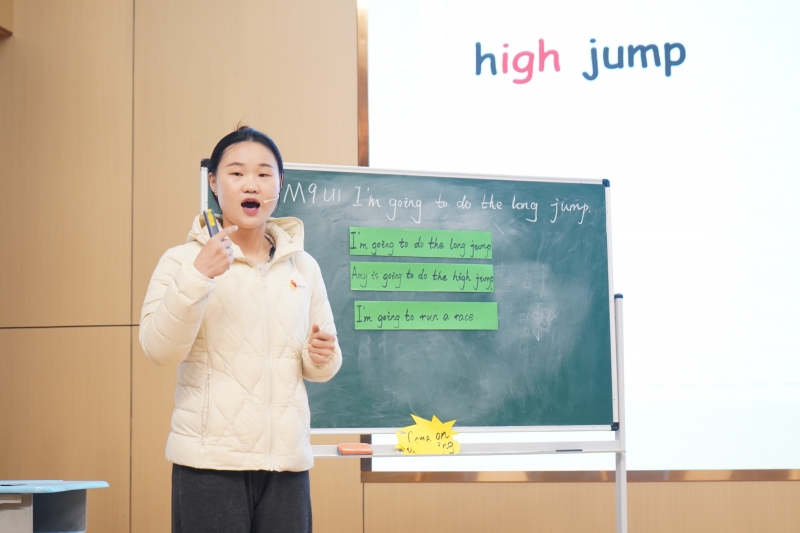 high jump
M9U1 I'm going to do the long jump.
I'm going to do the long jump.
Amy is going to do the high jump.
I'm going to run a race.
on